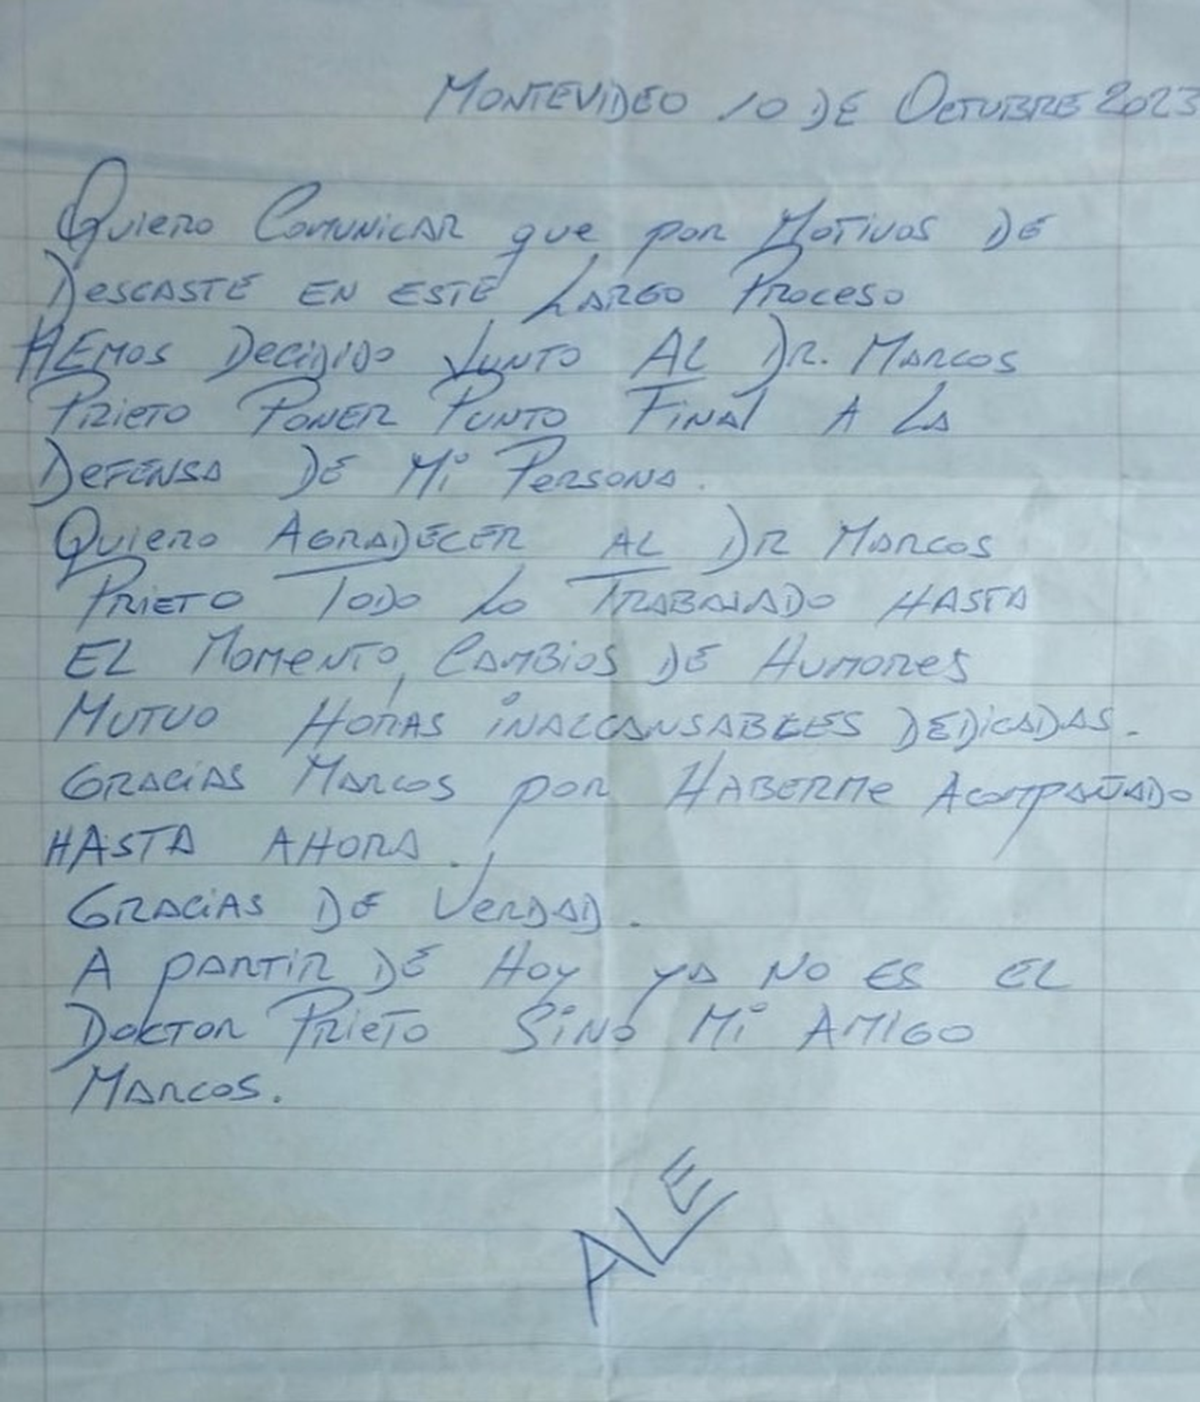 Montevideo 10 de Octubre 2023
Quiero Comunicar que por Motivos de
Descaste en este Largo Proceso
Hemos Decidido Junto al Dr. Marcos
Prieto Poner Punto Final a la
Defensa de Mi Persona.
Quiero Agradecer al Dr Marcos
Prieto Todo lo Trabajado Hasta
el Momento, Cambios de Humores
Mutuo Horas inalcansablees dedicadas.
Gracias Marcos por Haberme Acompañado
Hasta Ahora.
Gracias de Verdad.
A partir de Hoy ya no es el
Doktor Prieto Sino Mi Amigo
Marcos.
ALE